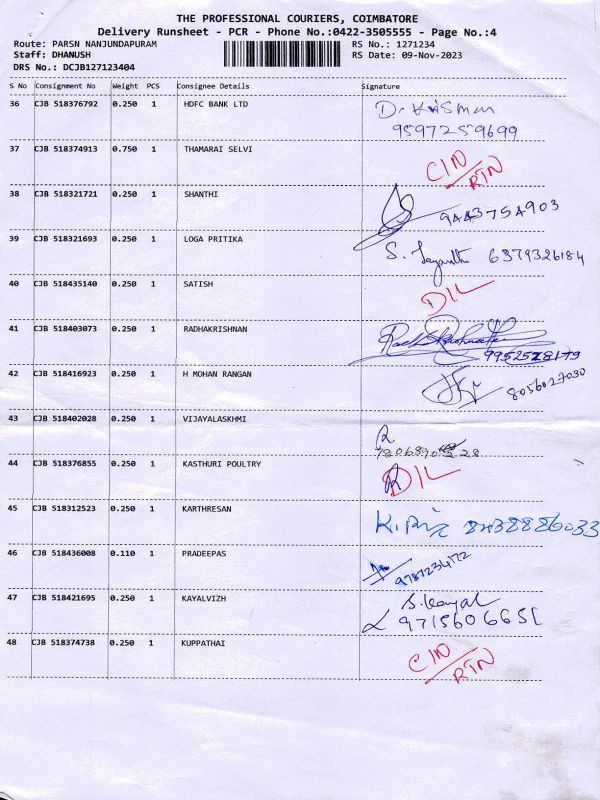 THE PROFESSIONAL COURIERS, COIMBATORE
Delivery Runsheet - PCR - Phone No.:0422-3505555 - Page No.:4
Route: PARSN NANJUNDAPURAM RS No.: 1271234
Staff: DHANUSH RS Date: 09-Nov-2023
DRS No.: DCJB127123404
S No Consignment No Weight PCS Consignee Details Signature
36 CJB 518376792 0.250 1 HDFC BANK LTD
9597259699
37 CJB 518374913 0.750 1 THAMARAI SELVI
CIN/RTN
38 CJB 518321721 0.250 1 SHANTHI
9443754903
39 CJB 518321693 0.250 1 LOGA PRITIKA
S. Jayanthi 6379326184
40 CJB 518435140 0.250 1 SATISH
DIL
41 CJB 518403073 0.250 1 RADHAKRISHNAN
Radhakrishnan
42 CJB 518416923 0.250 1 H MOHAN RANGAN
8056027030
43 CJB 518402028 0.250 1 VIJAYALASKHMI
44 CJB 518376855 0.250 1 KASTHURI POULTRY
DIL
45 CJB 518312523 0.250 1 KARTHRESAN
8438886033
46 CJB 518436008 0.110 1 PRADEEPAS
9787234172
47 CJB 518421695 0.250 1 KAYALVIZH
S. Kayal
9715606651
48 CJB 518374738 0.250 1 KUPPATHAI
CIN/RTN